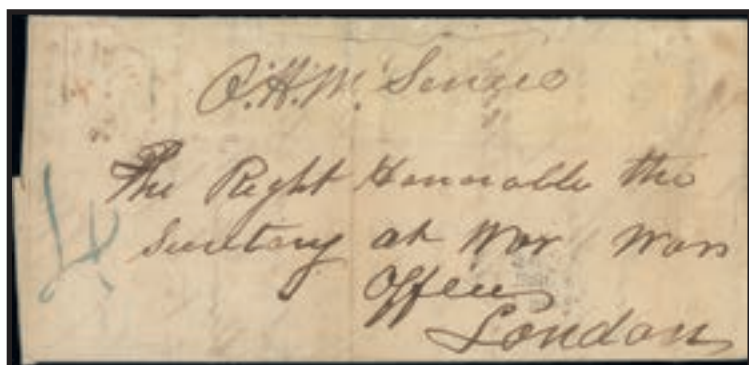 O.H.M. Service
The Right Honorable the
Secretary at War War
Office
London